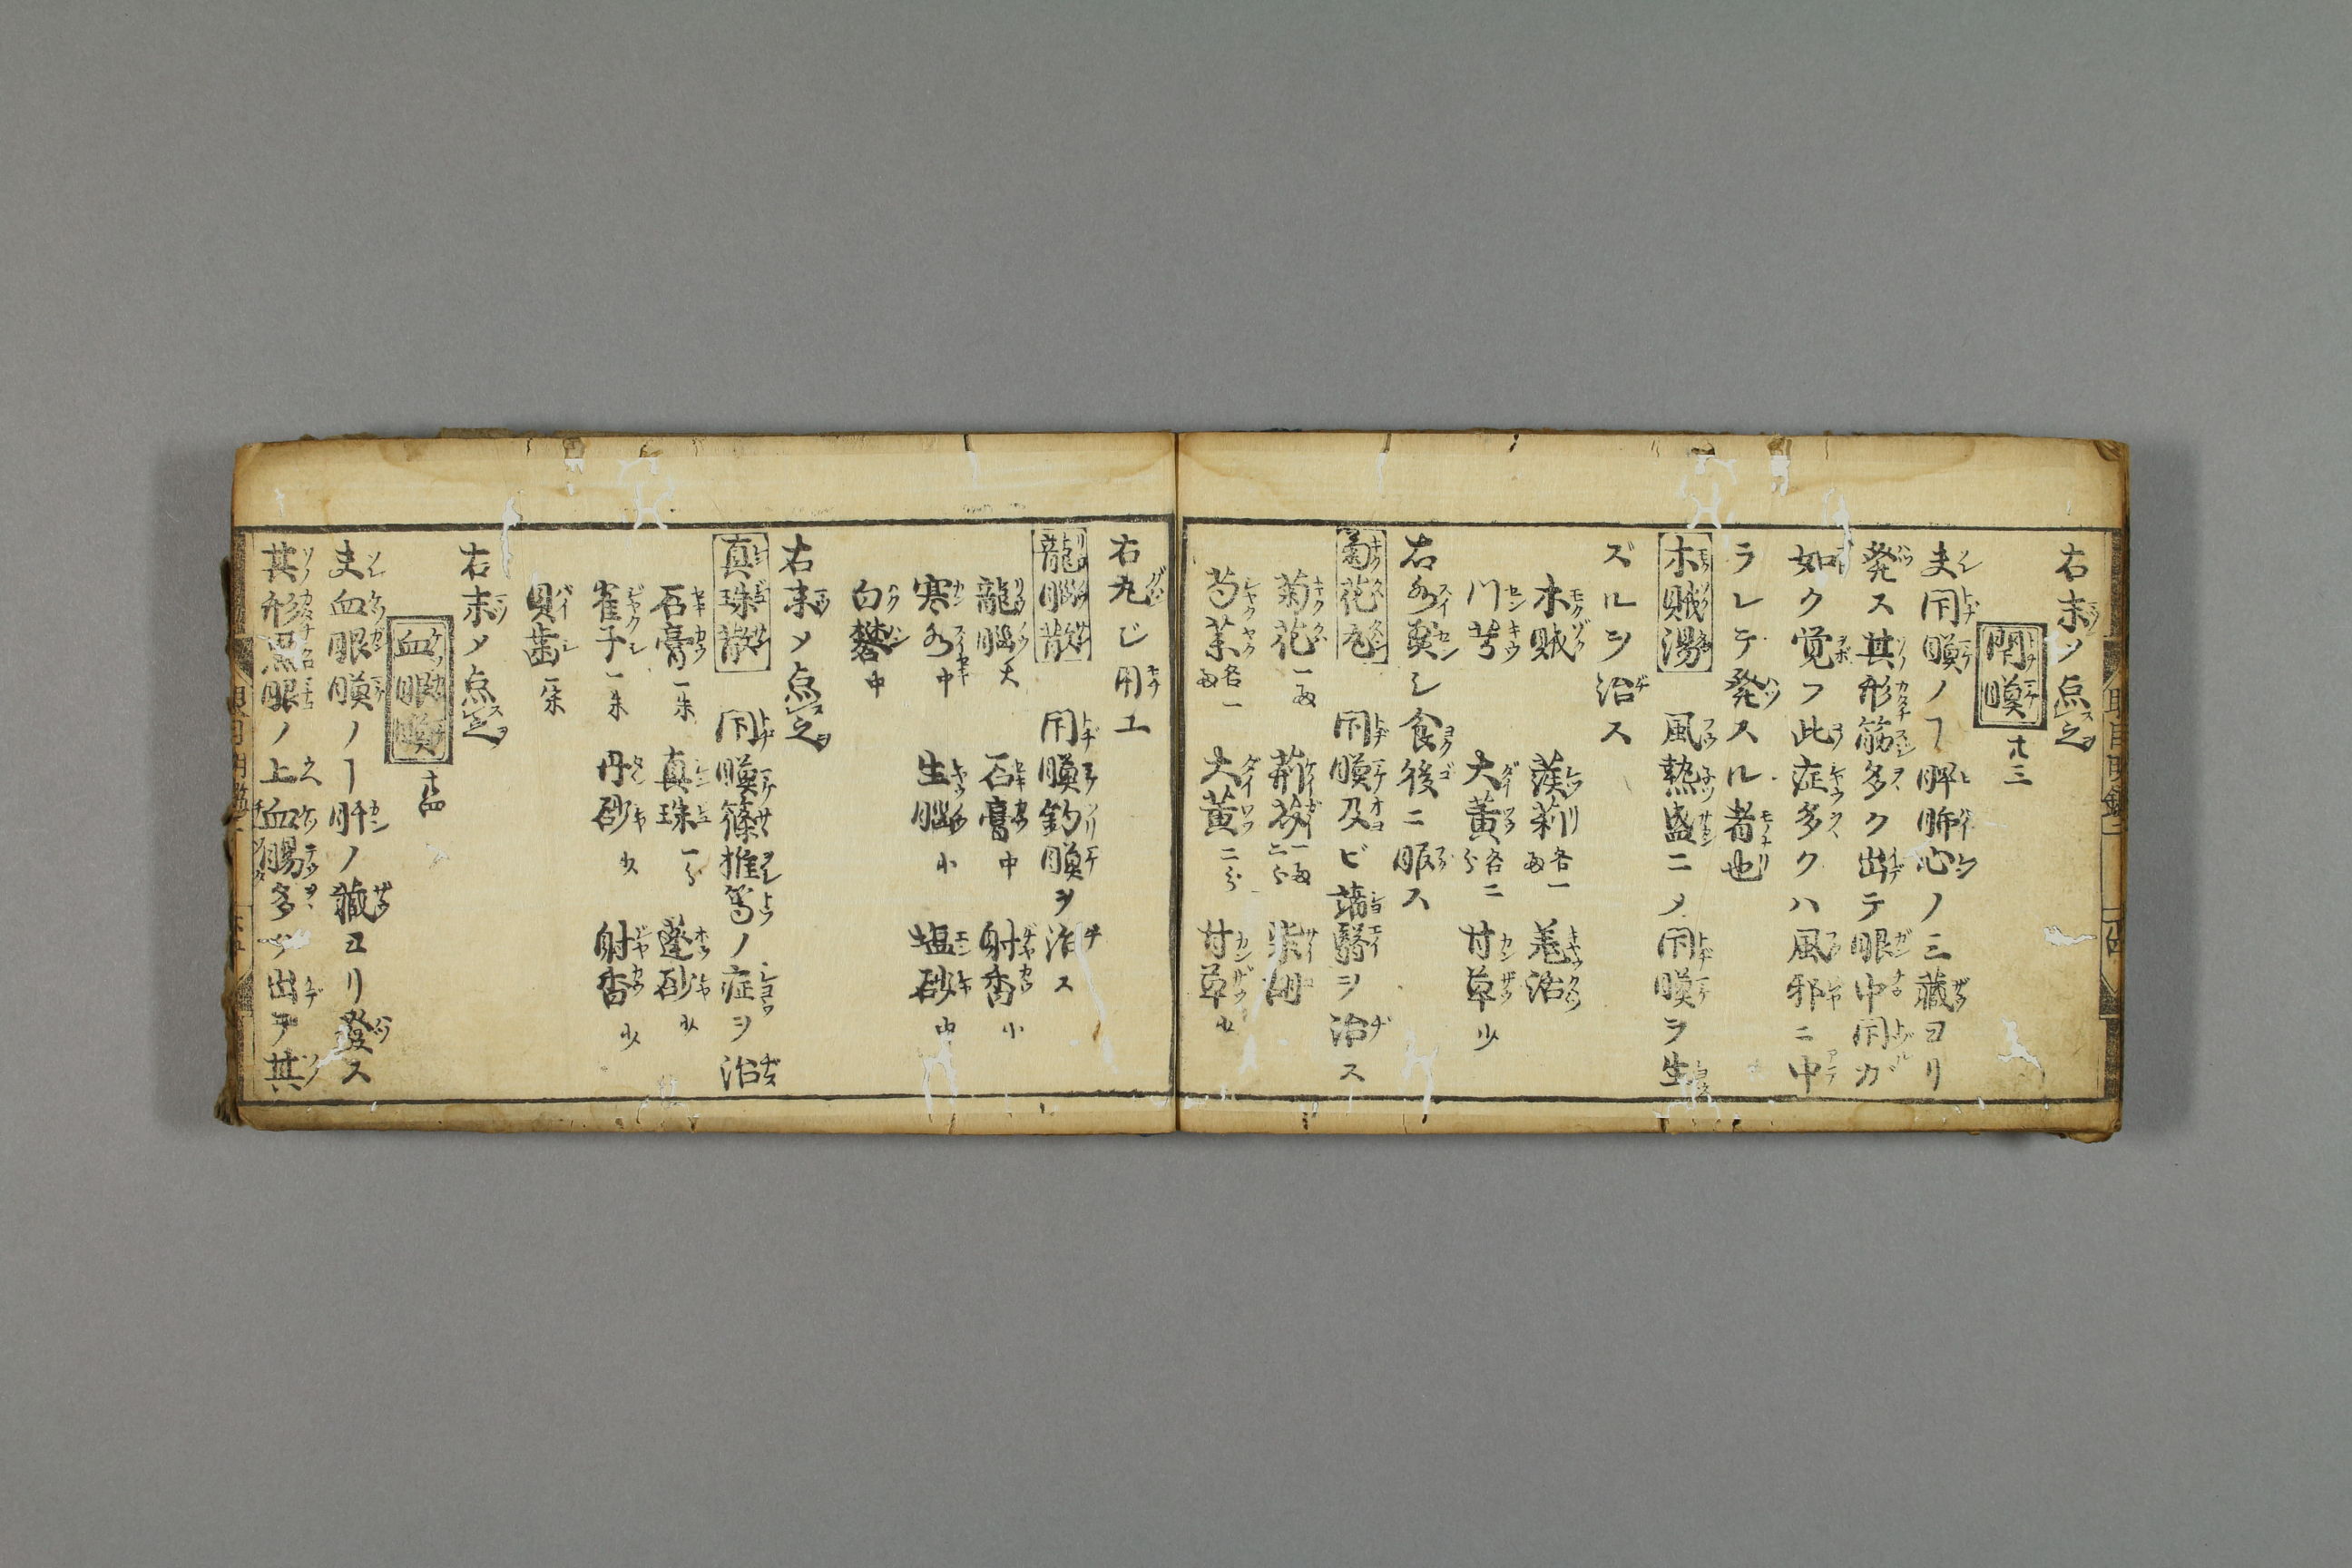 右末メ点之
閉瞙 十三
夫閇瞙ノヿ脾肺心ノ三蔵ヨリ
発ス其形筋多ク出テ眼中閇ガ
如ク覚フ此症多クハ風邪ニ中
ラレテ発スル者也
木賊湯 風熱盛ニメ閇瞙ヲ生
ズルヲ治ス
木賊 蒺莉各一両 羗活
川芎 大黄各二分 甘草少
右水煎シ食後ニ服ス
菊花丸 閇瞙及ビ諸醫ヲ治ス
菊花一両 荊芥一両二分 柴胡
芍薬各一両 大黄二分 甘草少
右丸ジ用ユ
龍脳散 閇瞙釣瞙ヲ治ス
龍脳大 石膏中 射香小
寒水中 生脳小 塩砂中
白礬中
右末メ点之
真珠散 閇瞙篠推篤ノ症ヲ治
石膏一朱 真珠一分 蓬砂少
雀子一朱 丹砂少 射香少
貝歯一朱
右末メ点之
血眼瞙 十四
夫血眼瞙ノヿ肝ノ蔵ヨリ發ス
其形黒眼ノ上血腸多ク出テ其